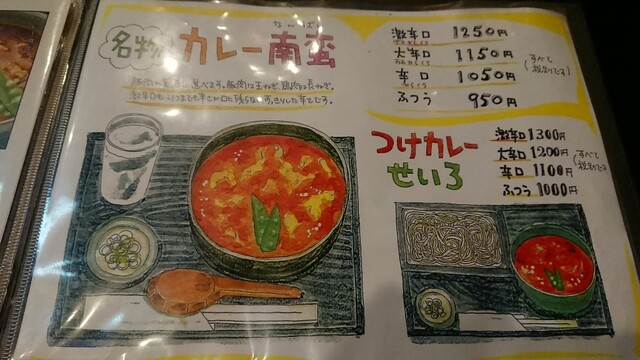 名物
カレー南蛮
なんばん
豚肉は玉ねぎ、鶏肉は長ねぎ。
激辛口 1250円
大辛口 1150円
辛口 1050円
ふつう 950円
(すべて税別です)
つけカレー
せいろ
激辛口 1300円
大辛口 1200円
辛口 1100円
ふつう 1000円
(すべて税別です)